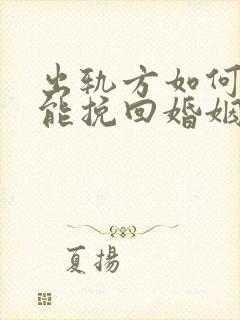 出轨方如何
能挽回婚姻
夏揚